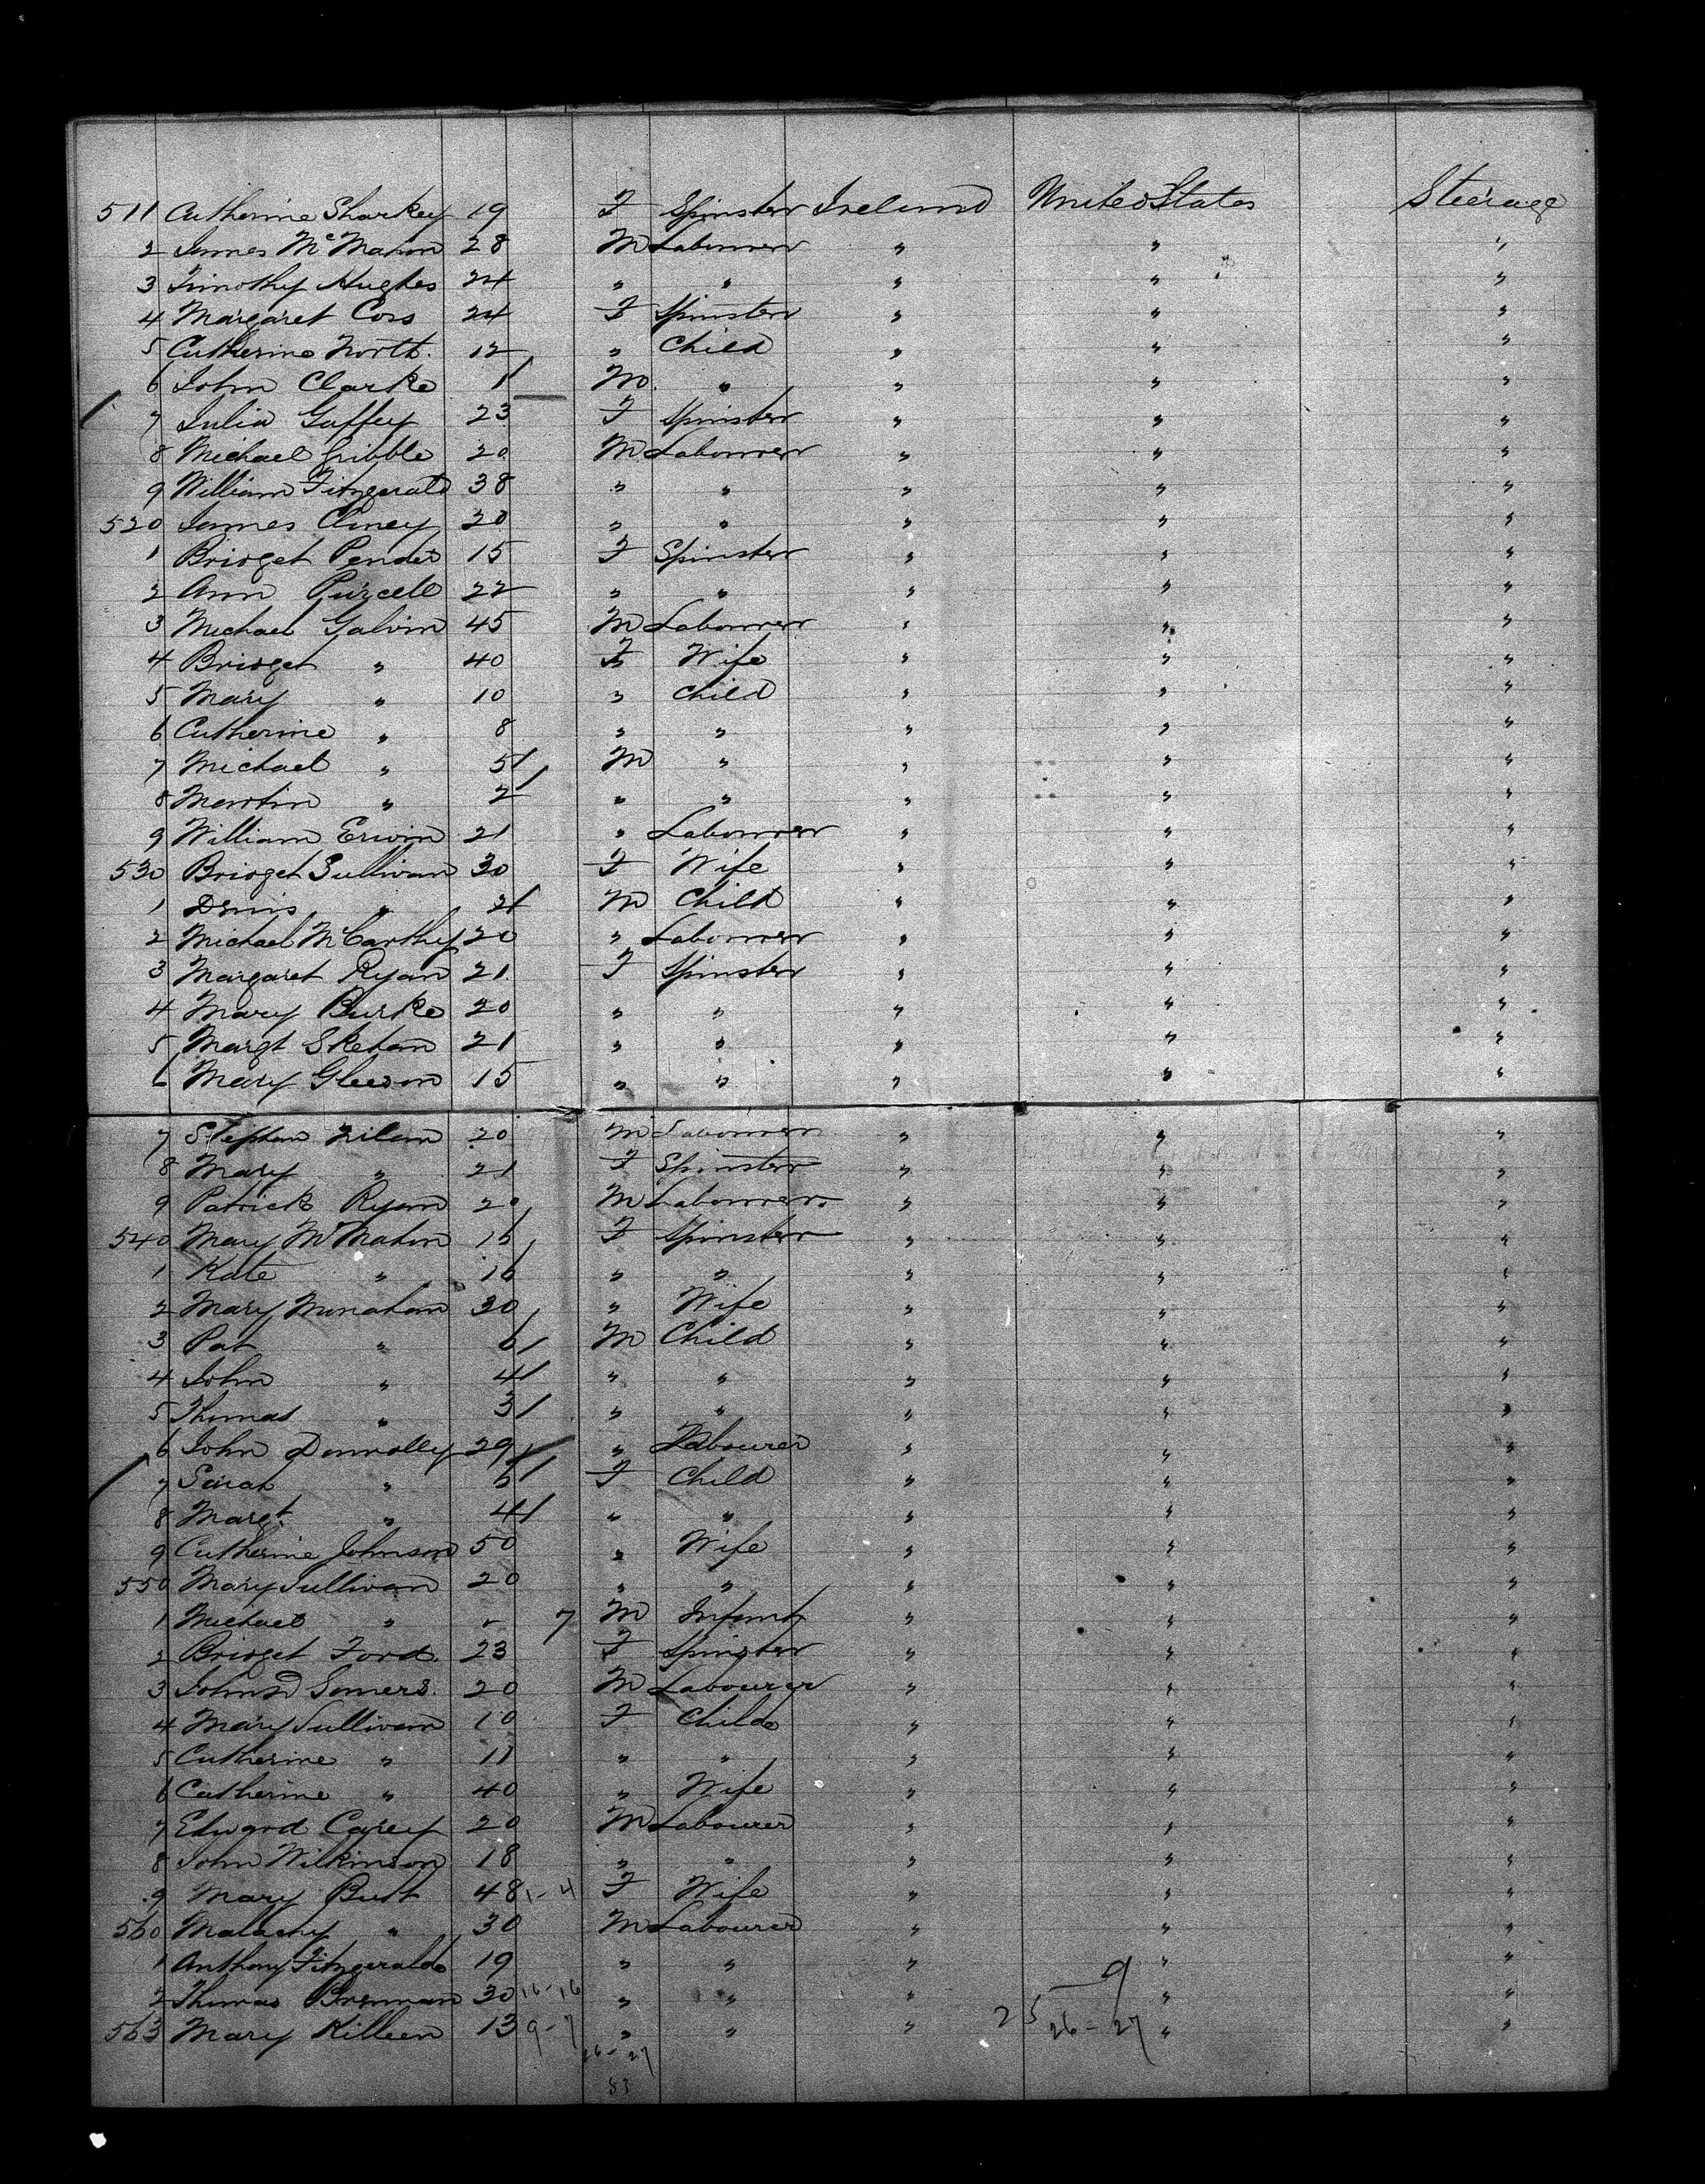 511 Catherine Sharkey 19 F Spinster Ireland United States Steerage
2 James McMahon 28 M Labourer " " "
3 Timothy Hughes 24 " " " " "
4 Margaret Coss 24 F Spinster " " "
5 Catherine North. 12 " Child " " "
6 John Clarke 1 M. " " " "
7 Julia Gaffey 23 F Spinster " " "
8 Michael Gribble 20 M Labourer " " "
9 William Fitzgerald 38 " " " " "
520 James Cliney 20 " " " " "
1 Bridget Pender 15 F Spinster " " "
2 Ann Purcell 22 " " " " "
3 Michael Galvin 45 M Labourer " " "
4 Bridget " 40 F Wife " " "
5 Mary " 10 " Child " " "
6 Catherine " 8 " " " " "
7 Michael " 5 M " " " "
8 Martin " 2 " " " " "
9 William Erwin 21 " Labourer " " "
530 Bridget Sullivan 30 F Wife " " "
1 Denis " 2 M Child " " "
2 Michael McCarthy 20 " Labourer " " "
3 Margaret Ryan 21 F Spinster " " "
4 Mary Burke 20 " " " " "
5 Margt Skehan 21 " " " " "
6 Mary Gleeson 15 " " " " "
7 Stephen Nilan 20 M Labourer " " "
8 Mary " 21 F Spinster " " "
9 Patrick Ryan 20 M Labourer " " "
540 Mary McMahon 16 F Spinster " " "
1 Kate " 16 " " " " "
2 Mary Monahan 30 " Wife " " "
3 Pat " 6 M Child " " "
4 John " 4 " " " " "
5 Thomas " 3 " " " " "
6 John Donnolly 29 " Labourer " " "
7 Sarah " 5 F Child " " "
8 Margt. " 4 " " " " "
9 Catherine Johnson 50 " Wife " " "
550 Mary Sullivan 20 " " " " "
1 Michael " 7 M Infant " " "
2 Bridget Ford. 23 F Spinster " " "
3 John Somers. 20 M Labourer " " "
4 Mary Sullivan 10 F Child " " "
5 Catherine " 11 " " " " "
6 Catherine " 40 " Wife " " "
7 Edward Carey 20 M Labourer " " "
8 John Wilkinson 18 " " " " "
9 Mary Butt 48 1-4 F Wife " " "
560 Malachy " 30 M Labourer " " "
1 Anthony Fitzgerald 19 " " " " "
2 Thomas Brennan 30 16-16 " " " 9 " "
563 Mary Killeen 13 9-7 " " " 25 26-27 " "
26-27
53